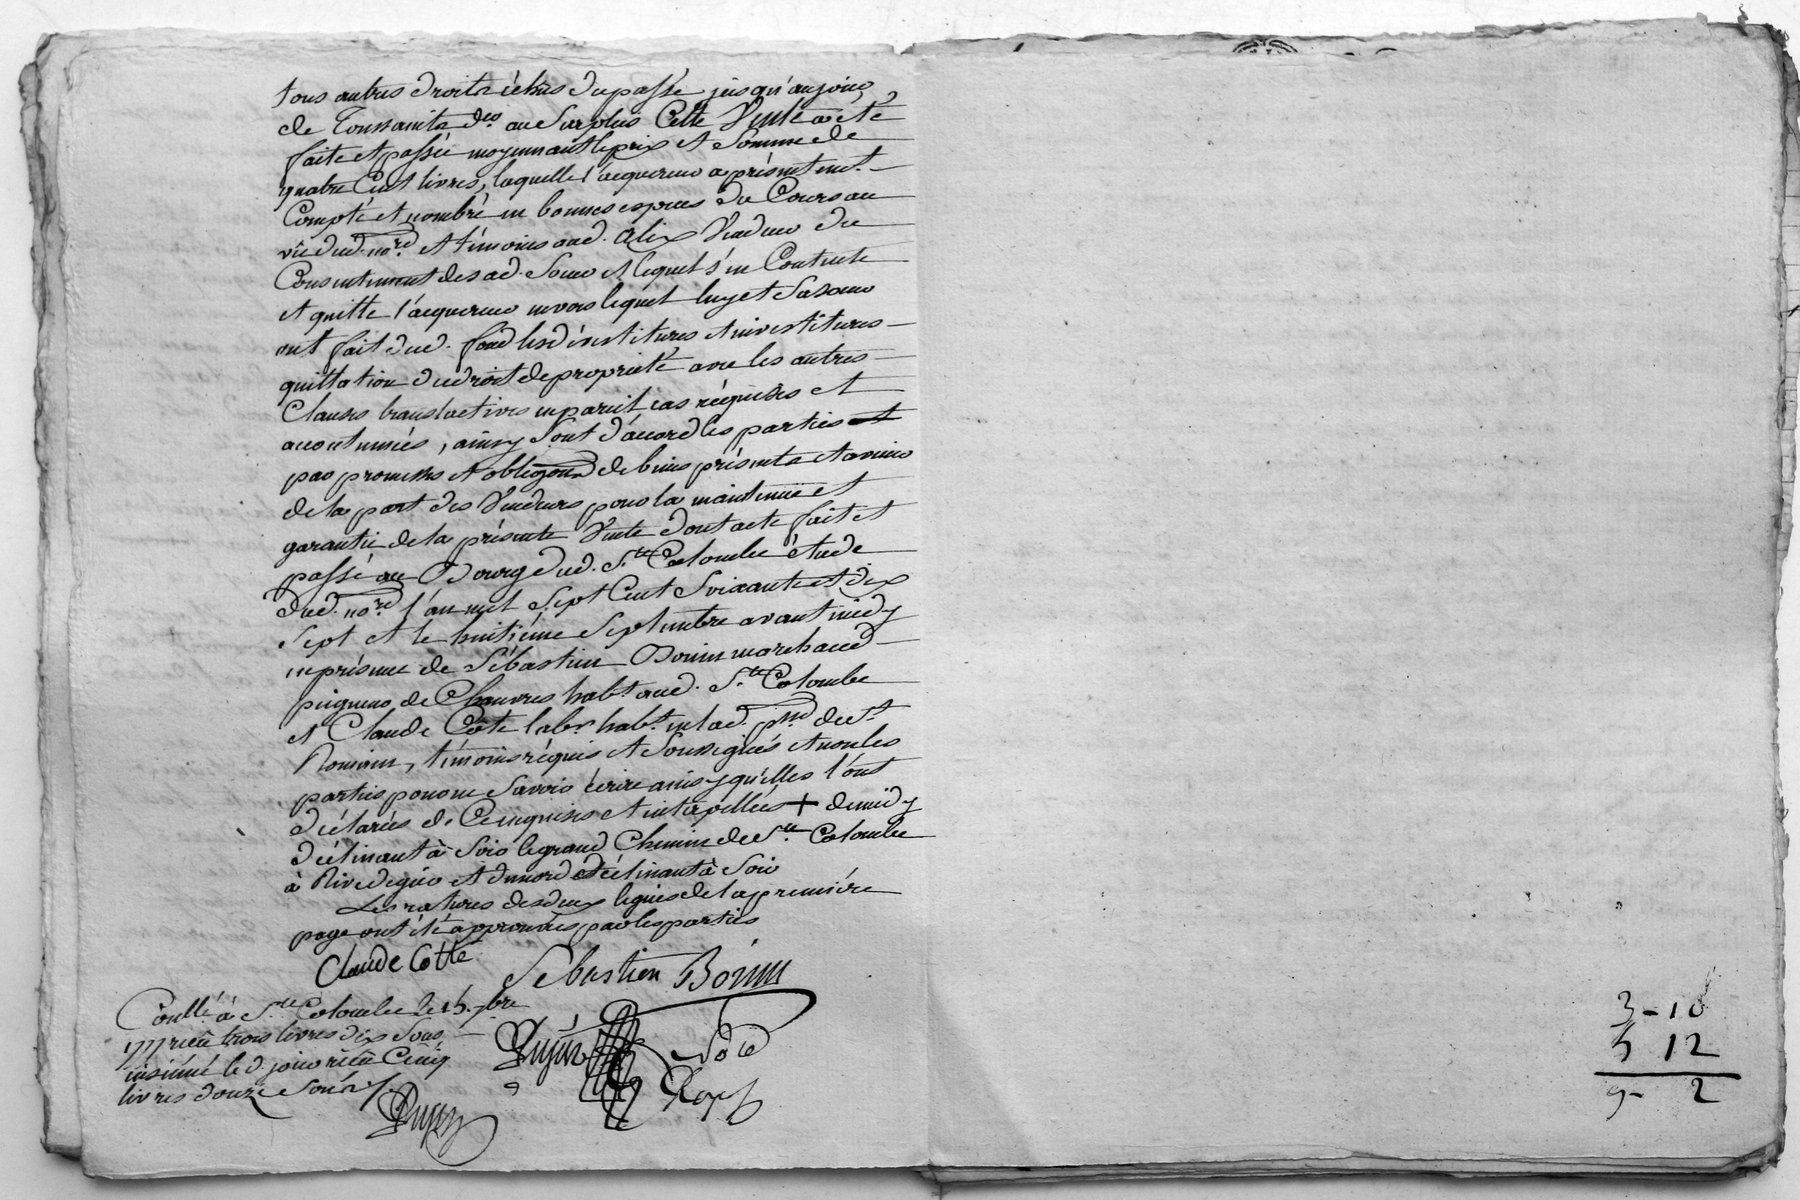 tous autres droits échus du passé jusqu'au jour
de Toussaints d.er au Surplus Cette Vente a été
faite et passée moyennant le prix et Somme de
quatre Cent livres, laquelle l'acquereur a présentemt.
Compté et nombré en bonnes espèces du Cours au
vû dud. no.re et témoins aud. Alix Vendeur du
Consentement de sad. Soeur et lequel s'en Contente
et quitte l'acquereur envers lequel luy et Sa soeur
ont fait dud. fond les dévestitures et investitures
quittation du droit de proprieté avec les autres
Clauses translatives en pareil cas réquises et
accoutumées, ainsy Sont d'accord les parties
par promesses et obligaons de biens présents et avenir
de la part des Vendeurs pour la maintenüe et
garantie de la présente Vente dont acte fait et
passé au Bourg dud. S.te Colombe étude
dud. no.re l'an mil Sept Cent Soixante et dix
Sept et le huitième Septembre avant midy
en présence de Sébastien Bonin marchand
peigneur de Chanvres habt. aud. S.te Colombe
et Claude Côte labr. habt. en lad. p.sse de St.
Romain, témoins réquis et Soussignés et non les
parties pour ne Savoir écrire ainsy qu'elles l'ont
déclarées de Ce enquises et interpellées + de midy
déclinant à Soir le grand Chemin de S.te Colombe
à Rivedegier et du nord déclinant à Soir
Les ratures des deux lignes de la première
page ont été approuvées par les parties
Claude Côtte
Sebastien Bonin
Conllé à S.te Colombe le 15. 7bre
1777 reçu trois livres dix Sous
insinué le d. jour reçu Cinq
livres douze Sous
3 - 10
5 12
9 - 2